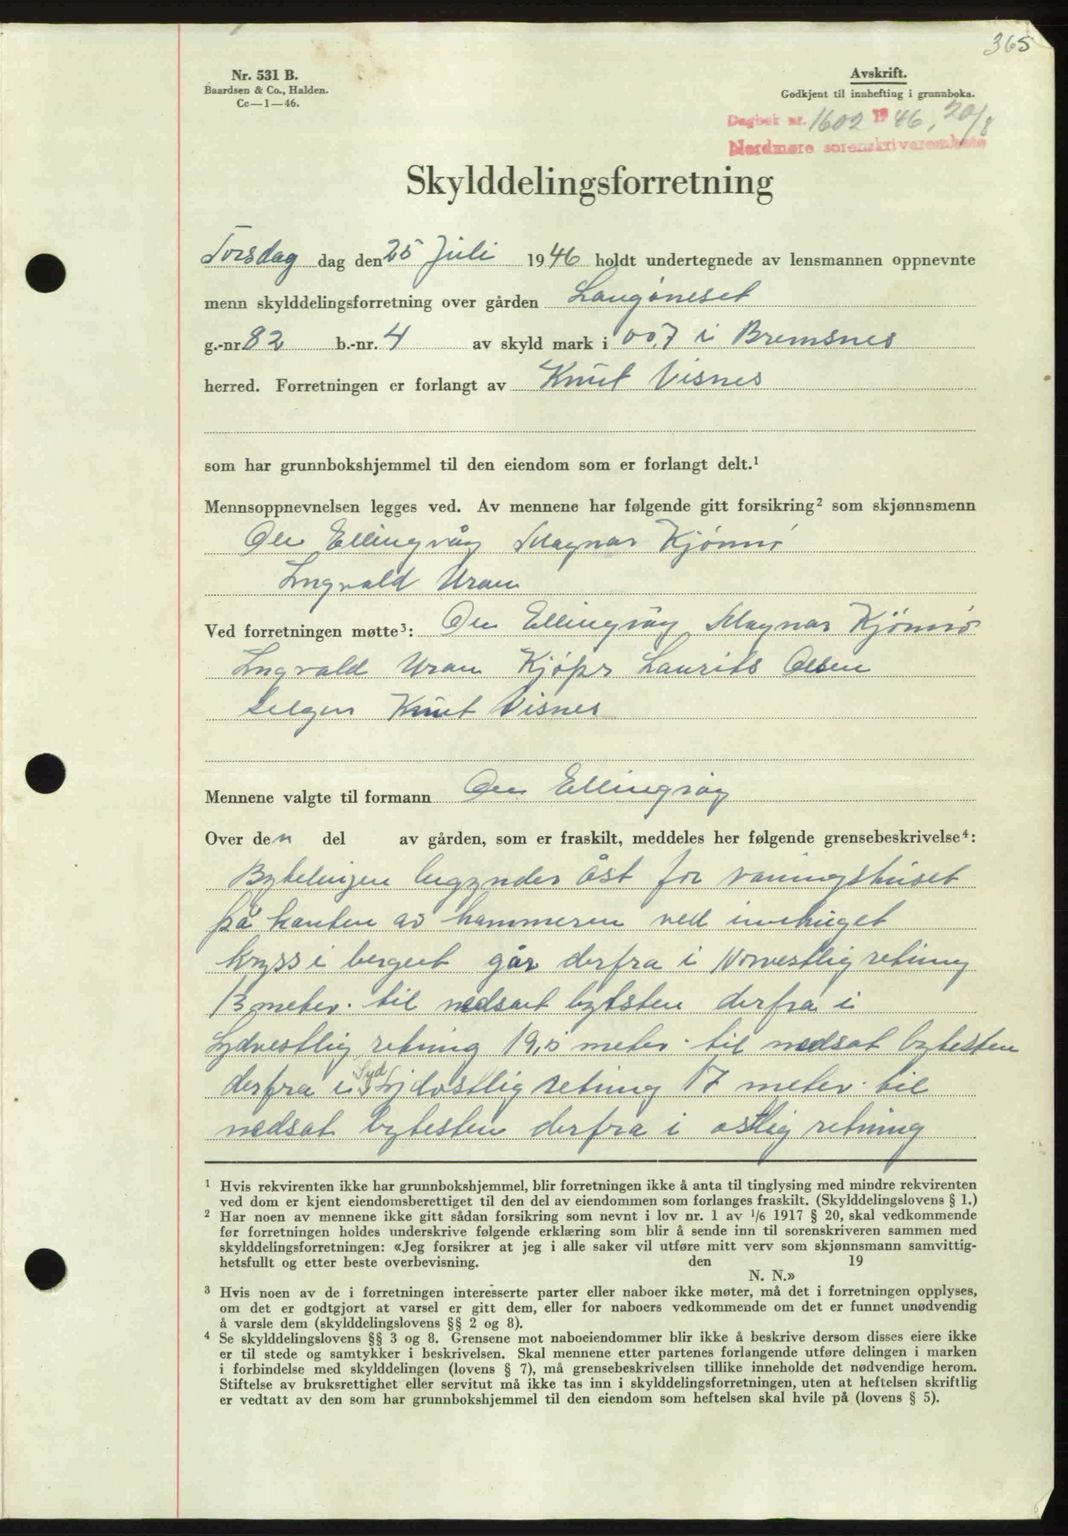 365
Nr. 531 B.
Baardsen & Co., Halden.
Cc—1—46.
Avskrift.
Godkjent til innhefting i grunnboka.
Dagbok nr. 1602 1946, 20/8
Nordmøre sorenskriverembete
Skylddelingsforretning
Torsdag dag den 25 Juli 1946 holdt undertegnede av lensmannen oppnevnte
menn skylddelingsforretning over gården Langöneset
g.-nr. 82 b.-nr. 4 av skyld mark i 00,7 i Bremsnes
herred. Forretningen er forlangt av Knut Visnes
som har grunnbokshjemmel til den eiendom som er forlangt delt.¹
Mennsoppnevnelsen legges ved. Av mennene har følgende gitt forsikring² som skjønnsmenn
Ole Ellingvåg Magnar Kjönnö
Ingvald Uran
Ved forretningen møtte³: Ole Ellingsvåg Magnar Kjönnö
Ingvald Uran Kjöpr Laurits Olsen
Selger Knut Visnes
Mennene valgte til formann Ole Ellingsvåg
Over den del av gården, som er fraskilt, meddeles her følgende grensebeskrivelse⁴:
Bytelinjen begynder öst for vaningshuset
på kanten av hammeren ved innhuget
kryss i berget går derfra i Norvestlig retning
13 meter. til nedsat bytsten derfra i
Sydvestlig retning 19,5 meter. til nedsat bytesten
derfra i Syd Sydostlig retning 17 meter. til
nedsat bytesten derfra i ostlig retning
¹ Hvis rekvirenten ikke har grunnbokshjemmel, blir forretningen ikke å anta til tinglysing med mindre rekvirenten
ved dom er kjent eiendomsberettiget til den del av eiendommen som forlanges fraskilt. (Skylddelingslovens § 1.)
² Har noen av mennene ikke gitt sådan forsikring som nevnt i lov nr. 1 av 1/6 1917 § 20, skal vedkommende
før forretningen holdes underskrive følgende erklæring som blir å sende inn til sorenskriveren sammen med
skylddelingsforretningen: «Jeg forsikrer at jeg i alle saker vil utføre mitt verv som skjønnsmann samvittig-
hetsfullt og etter beste overbevisning. den 19
N. N.»
³ Hvis noen av de i forretningen interesserte parter eller naboer ikke møter, må det i forretningen opplyses,
om det er godtgjort at varsel er gitt dem, eller for naboers vedkommende om det er funnet unødvendig
å varsle dem (skylddelingslovens §§ 2 og 8).
⁴ Se skylddelingslovens §§ 3 og 8. Grensene mot naboeiendommer blir ikke å beskrive dersom disses eiere ikke
er til stede og samtykker i beskrivelsen. Skal mennene etter partenes forlangende utføre delingen i marken
i forbindelse med skylddelingen (lovens § 7), må grensebeskrivelsen tillike inneholde det nødvendige herom.
Stiftelse av bruksrettighet eller servitut må ikke tas inn i skylddelingsforretningen, uten at heftelsen skriftlig
er vedtatt av den som har grunnbokshjemmel til den eiendom som heftelsen skal hvile på (lovens § 5).